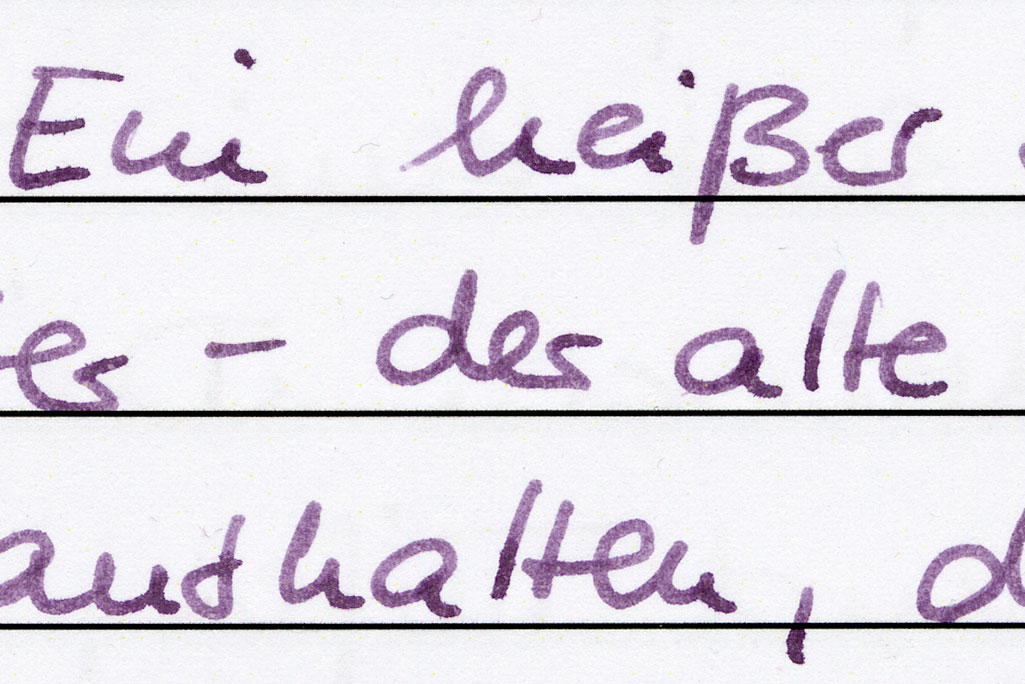 Ein heißer
er - der alte
standhalten, d